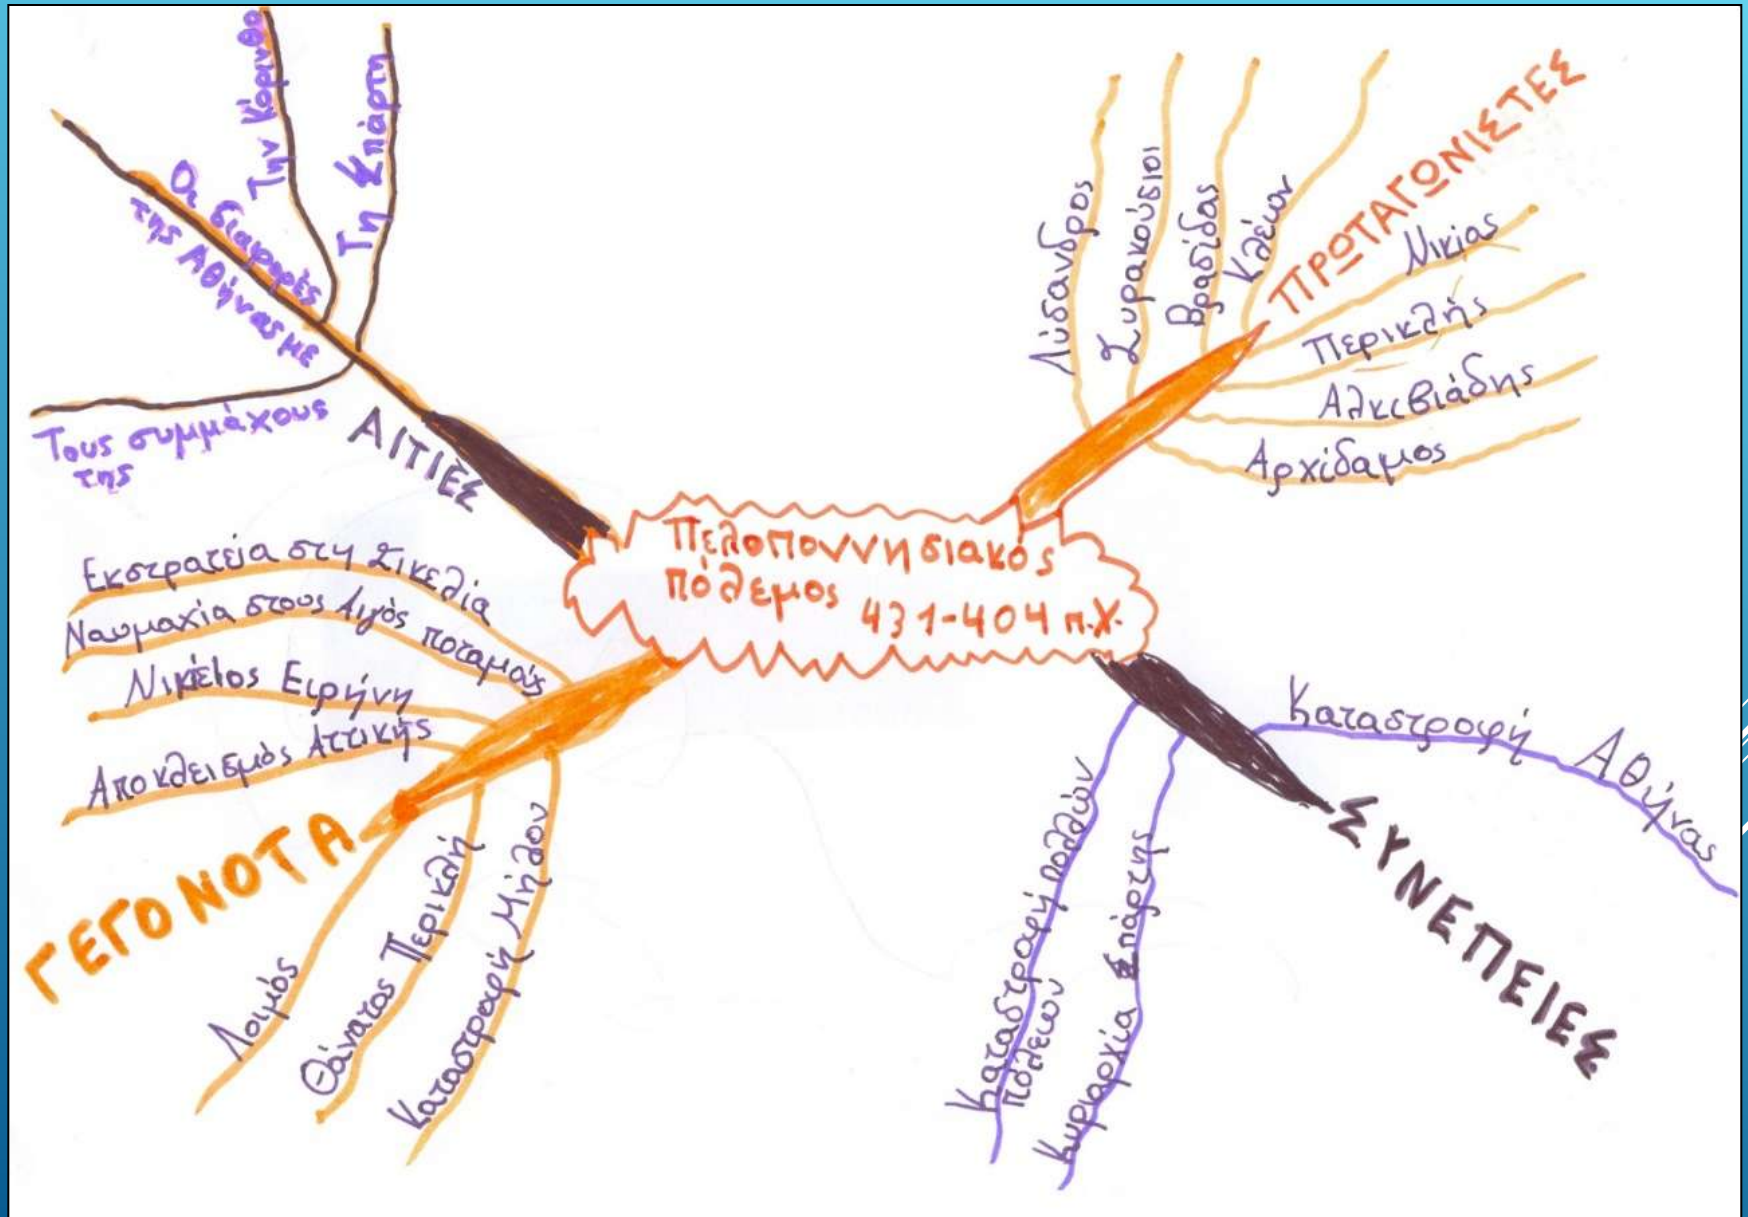 Πελοποννησιακός
πόλεμος 431-404 π.Χ.
ΑΙΤΙΕΣ
Οι διαφορές
της Αθήνας με
Την Κόρινθο
Τη Σπάρτη
Τους συμμάχους
της
ΠΡΩΤΑΓΩΝΙΣΤΕΣ
Λύσανδρος
Συρακούσιοι
Βρασίδας
Κλέων
Νικίας
Περικλής
Αλκιβιάδης
Αρχίδαμος
ΓΕΓΟΝΟΤΑ
Εκστρατεία στη Σικελία
Ναυμαχία στους Αιγός ποταμούς
Νικίειος Ειρήνη
Αποκλεισμός Αττικής
Λοιμός
Θάνατος Περικλή
Καταστροφή Μήλου
ΣΥΝΕΠΕΙΕΣ
Καταστροφή Αθήνας
Καταστροφή πολλών
πόλεων
Κυριαρχία Σπάρτης